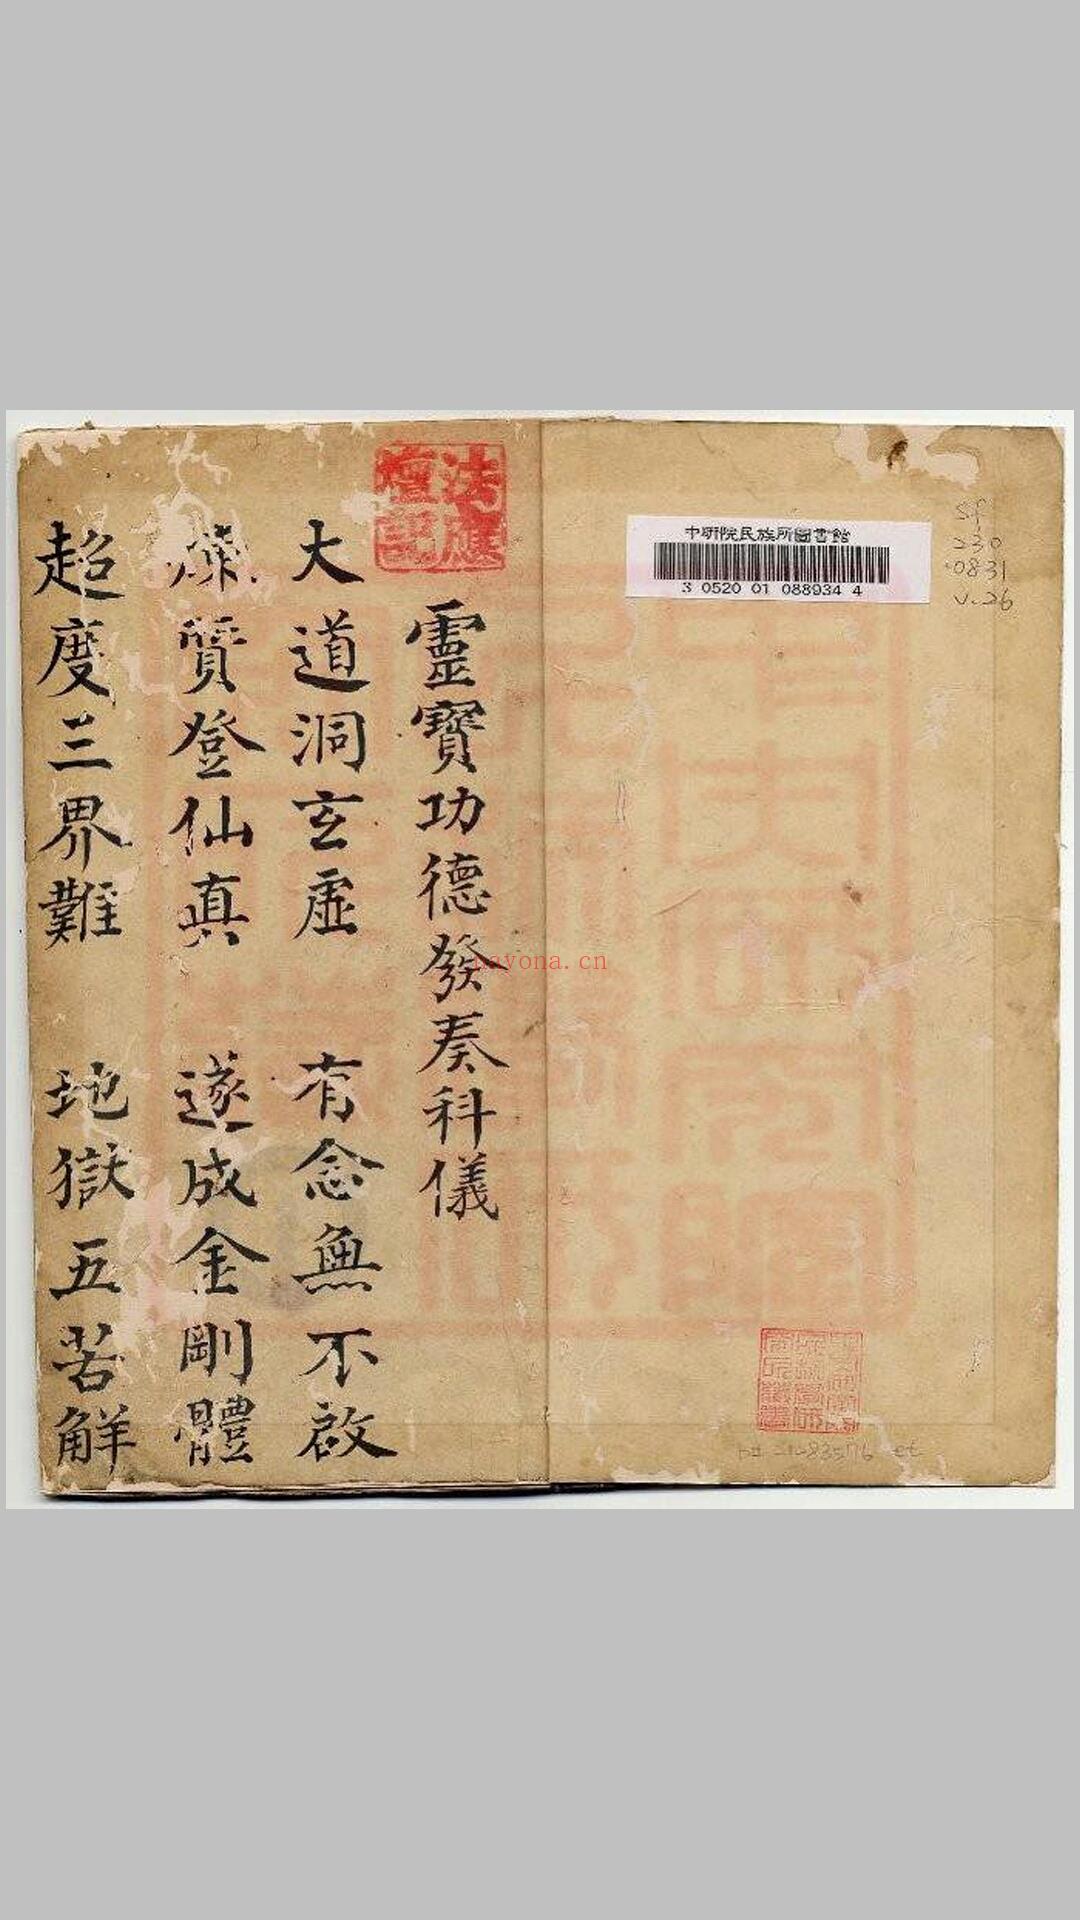 中研院民族所圖書館
3 0520 01 088934 4
Sf
230
.0831
v.26
法應
壇記
靈寶功德發奏科儀
大道洞玄虛 有念無不啟
煉質登仙真 遂成金剛體
超度三界難 地獄五苦解
nayona.cn